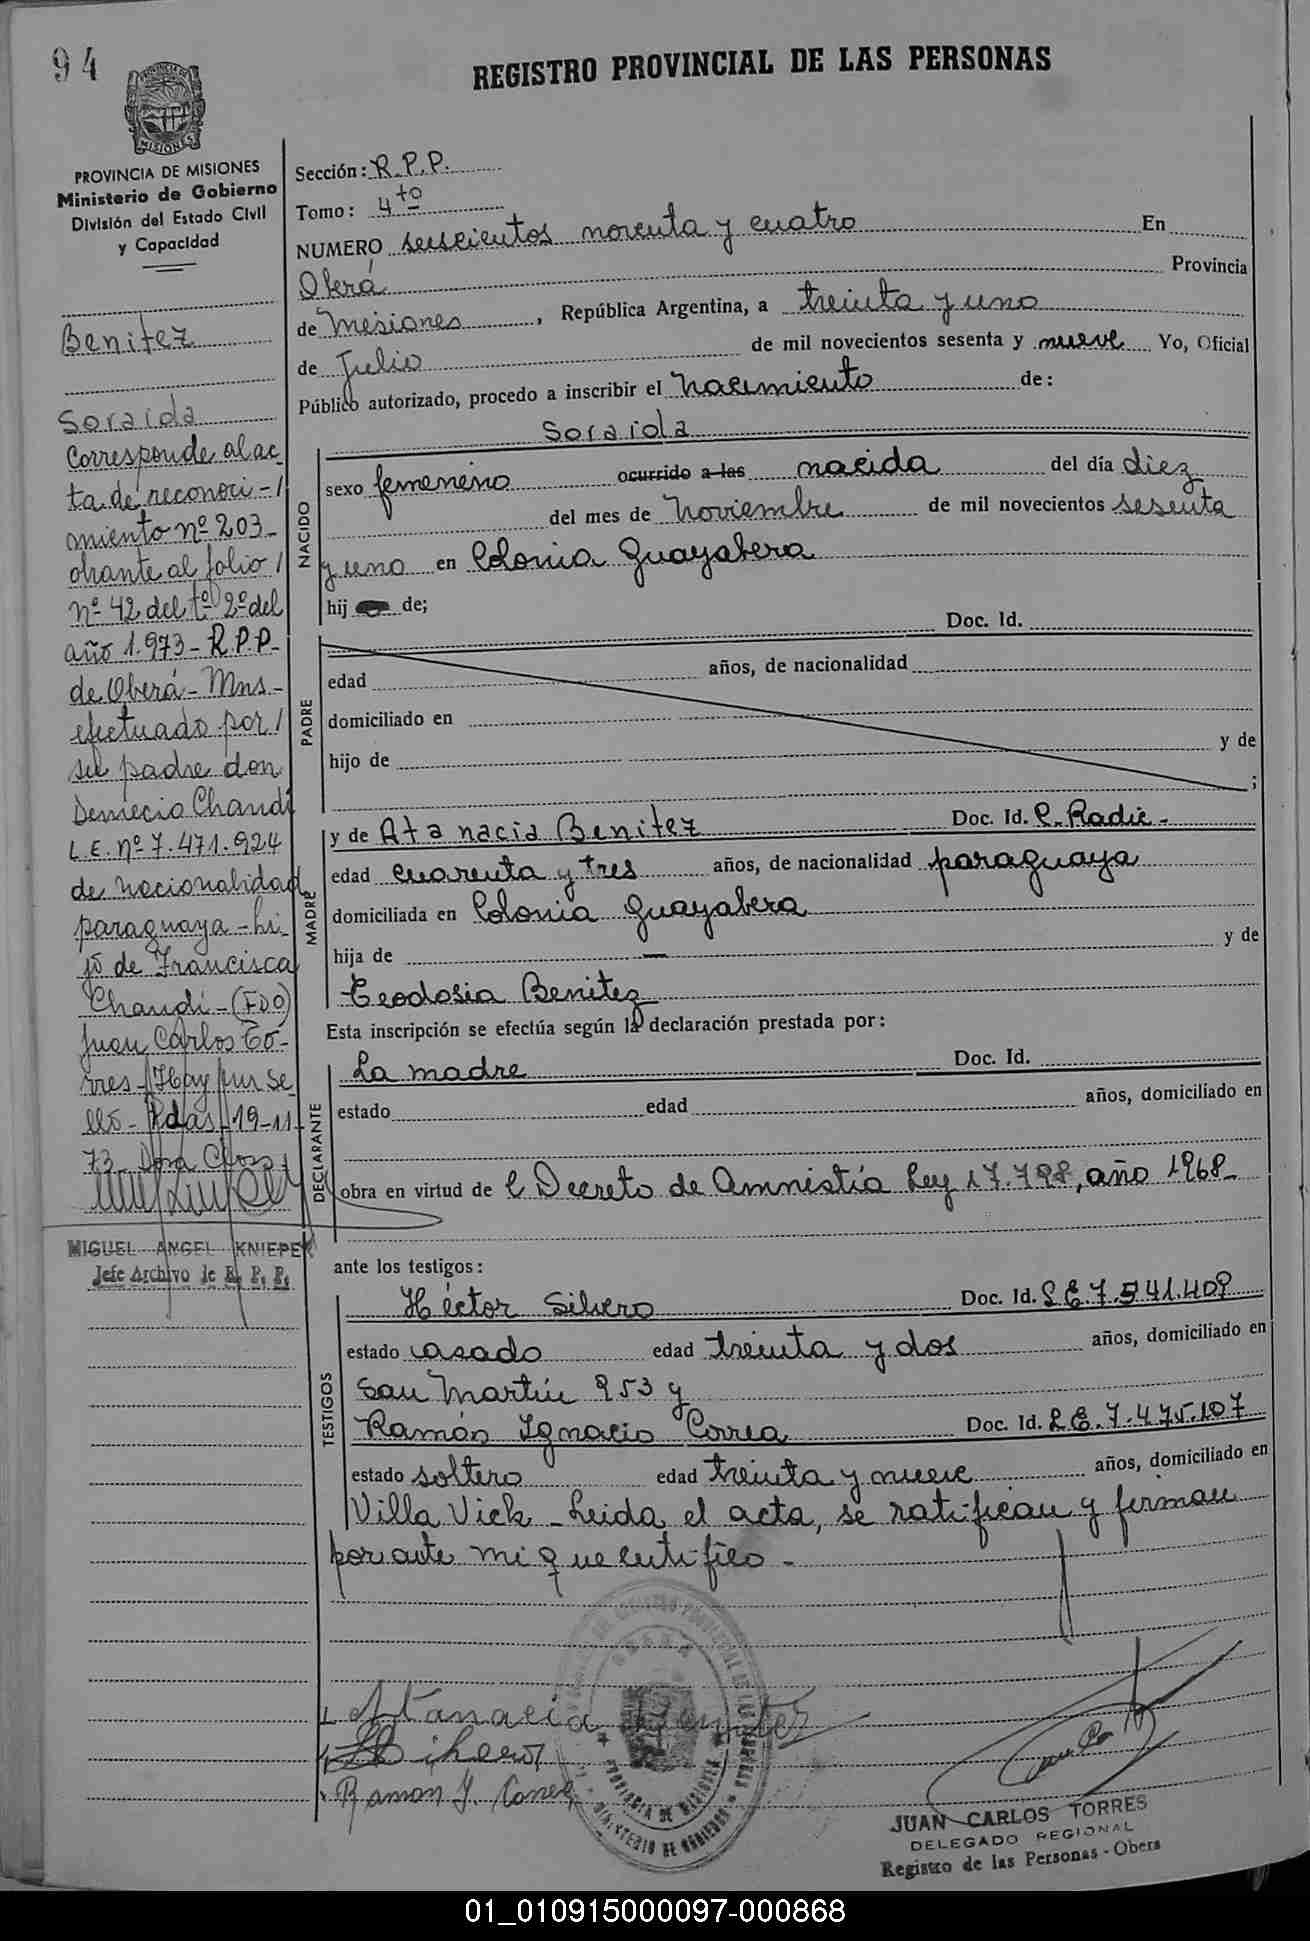 94
REGISTRO PROVINCIAL DE LAS PERSONAS
MISIONES
PROVINCIA DE MISIONES
Ministerio de Gobierno
División del Estado Civil
y Capacidad
Benitez
Soraida
Corresponde al ac-
ta de reconoci-/
miento nº 203-
obrante al folio/
nº 42 del tº 2º del
año 1.973- R.P.P-
de Oberá- Mns-
efectuado por/
su padre don
Demecio Chandi
L.E. nº 7.471.924
de nacionalidad
paraguaya- hi-
jo de Francisca
Chandi-(FDO)
Juan Carlos To-
rres- Hay un se-
llo- Pdas 19-11-
73-
MIGUEL ANGEL KNIEPER
Jefe Archivo de R. P. P.
Sección: R.P.P.
Tomo: 4to
NUMERO seiscientos noventa y cuatro En
Oberá Provincia
de Misiones, República Argentina, a treinta y uno
de Julio de mil novecientos sesenta y nueve Yo, Oficial
Público autorizado, procedo a inscribir el Nacimiento de:
Soraida
NACIDO
sexo femenino ocurrido a las nacida del día diez
del mes de Noviembre de mil novecientos sesenta
y uno en Colonia Guayabera
hij de;
Doc. Id.
PADRE
edad años, de nacionalidad
domiciliado en
hijo de y de
;
MADRE
y de Atanacia Benitez Doc. Id. C. Radic-
edad cuarenta y tres años, de nacionalidad paraguaya
domiciliada en Colonia Guayabera
hija de — y de
Teodosia Benitez
Esta inscripción se efectúa según la declaración prestada por:
DECLARANTE
La madre Doc. Id.
estado edad años, domiciliado en
obra en virtud de l Decreto de Amnistía Ley 17.798, año 1968-
ante los testigos:
TESTIGOS
Héctor Silvero Doc. Id. L E. 7.541.409
estado casado edad treinta y dos años, domiciliado en
San Martín 953 y
Ramón Ignacio Correa Doc. Id. L E. 7.475.107
estado soltero edad treinta y nueve años, domiciliado en
Villa Vick - Leida el acta, se ratifican y firman
por ante mi que certifico-
Atanacia Benitez
Ramon I. Correa
PROVINCIA DE MISIONES
MINISTERIO DE GOBIERNO
JUAN CARLOS TORRES
DELEGADO REGIONAL
Registro de las Personas - Obera
01_010915000097-000868